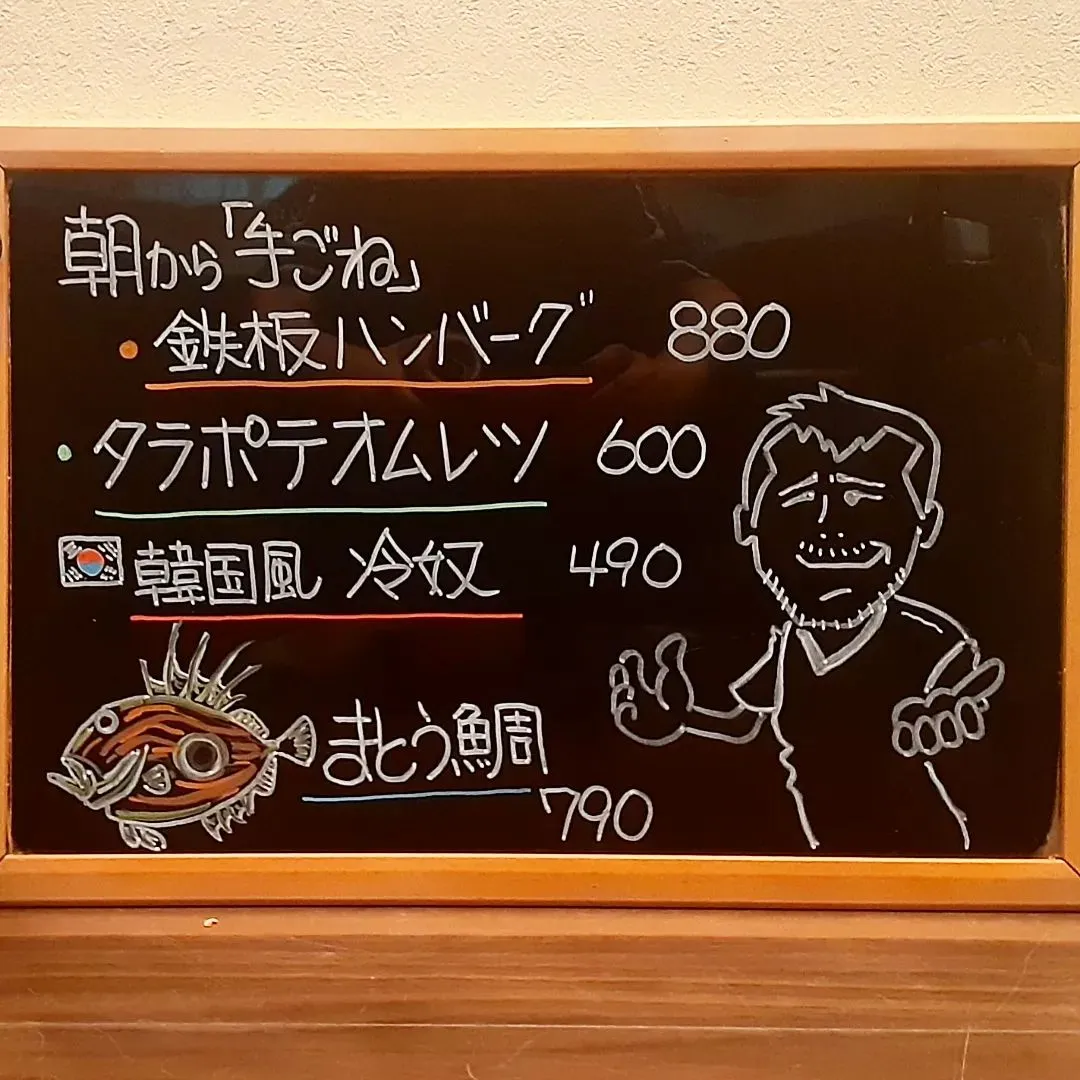 朝から「手ごね」
・鉄板ハンバーグ 880
・タラポテオムレツ 600
韓国風 冷奴 490
まとう鯛
790